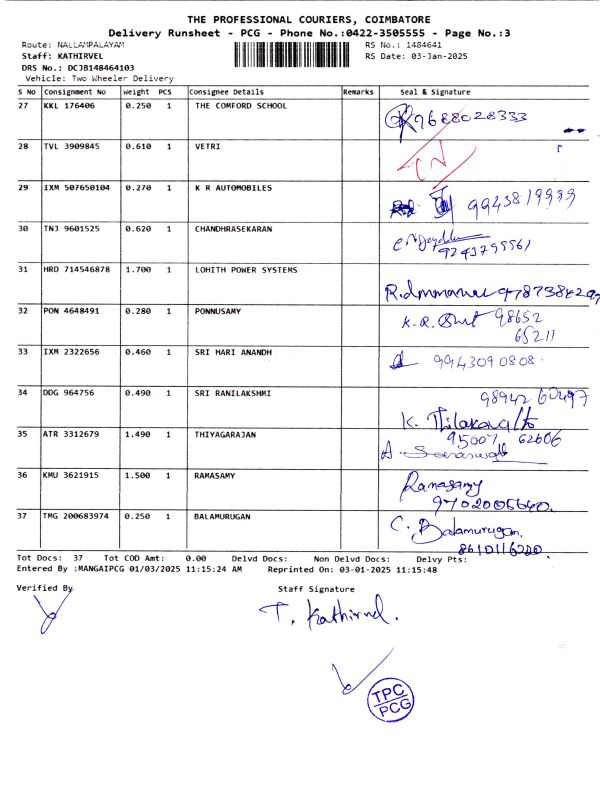 THE PROFESSIONAL COURIERS, COIMBATORE
Delivery Runsheet - PCG - Phone No.:0422-3505555 - Page No.:3
Route: NALLAMPALAYAM RS No.: 1484641
Staff: KATHIRVEL RS Date: 03-Jan-2025
DRS No.: DCJB148464103
Vehicle: Two Wheeler Delivery
S No Consignment No Weight PCS Consignee Details Remarks Seal & Signature
27 KKL 176406 0.250 1 THE COMFORD SCHOOL 9688028333
28 TVL 3909845 0.610 1 VETRI
29 IXM 507650104 0.270 1 K R AUTOMOBILES 9943819999
30 TNJ 9601525 0.620 1 CHANDHRASEKARAN
9243795561
31 HRD 714546878 1.700 1 LOHITH POWER SYSTEMS
32 PON 4648491 0.280 1 PONNUSAMY K.R. 98652
65211
33 IXM 2322656 0.460 1 SRI HARI ANANDH 9943090808
34 DDG 964756 0.490 1 SRI RANILAKSHMI 98942 60497
K.
35 ATR 3312679 1.490 1 THIYAGARAJAN 95007 62606
A.
36 KMU 3621915 1.500 1 RAMASAMY Ramasamy
37 TMG 200683974 0.250 1 BALAMURUGAN C. Balamurugan.
Tot Docs: 37 Tot COD Amt: 0.00 Delvd Docs: Non Delvd Docs: Delvy Pts:
Entered By :MANGAIPCG 01/03/2025 11:15:24 AM Reprinted On: 03-01-2025 11:15:48
Verified By Staff Signature
T. Kathirvel.
TPC
PCG